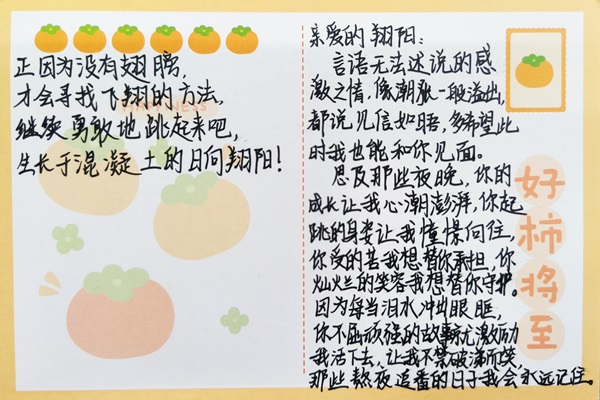 正因为没有翅膀，
才会寻找飞翔的方法，
继续勇敢地跳起来吧，
生长于混凝土的日向翔阳！
亲爱的翔阳：
言语无法述说的感
激之情，像潮涨一般溢出，
都说见信如晤，多希望此
时我也能和你见面。
思及那些夜晚，你的
成长让我心潮澎湃，你起
跳的身姿让我憧憬向往，
你受的苦我想替你承担，你
灿烂的笑容我想替你守护。
因为每当泪水冲出眼眶，
你不屈顽强的故事就尤激励
我活下去，让我不禁破涕而笑
那些熬夜追番的日子我会永远记住。
好柿将至